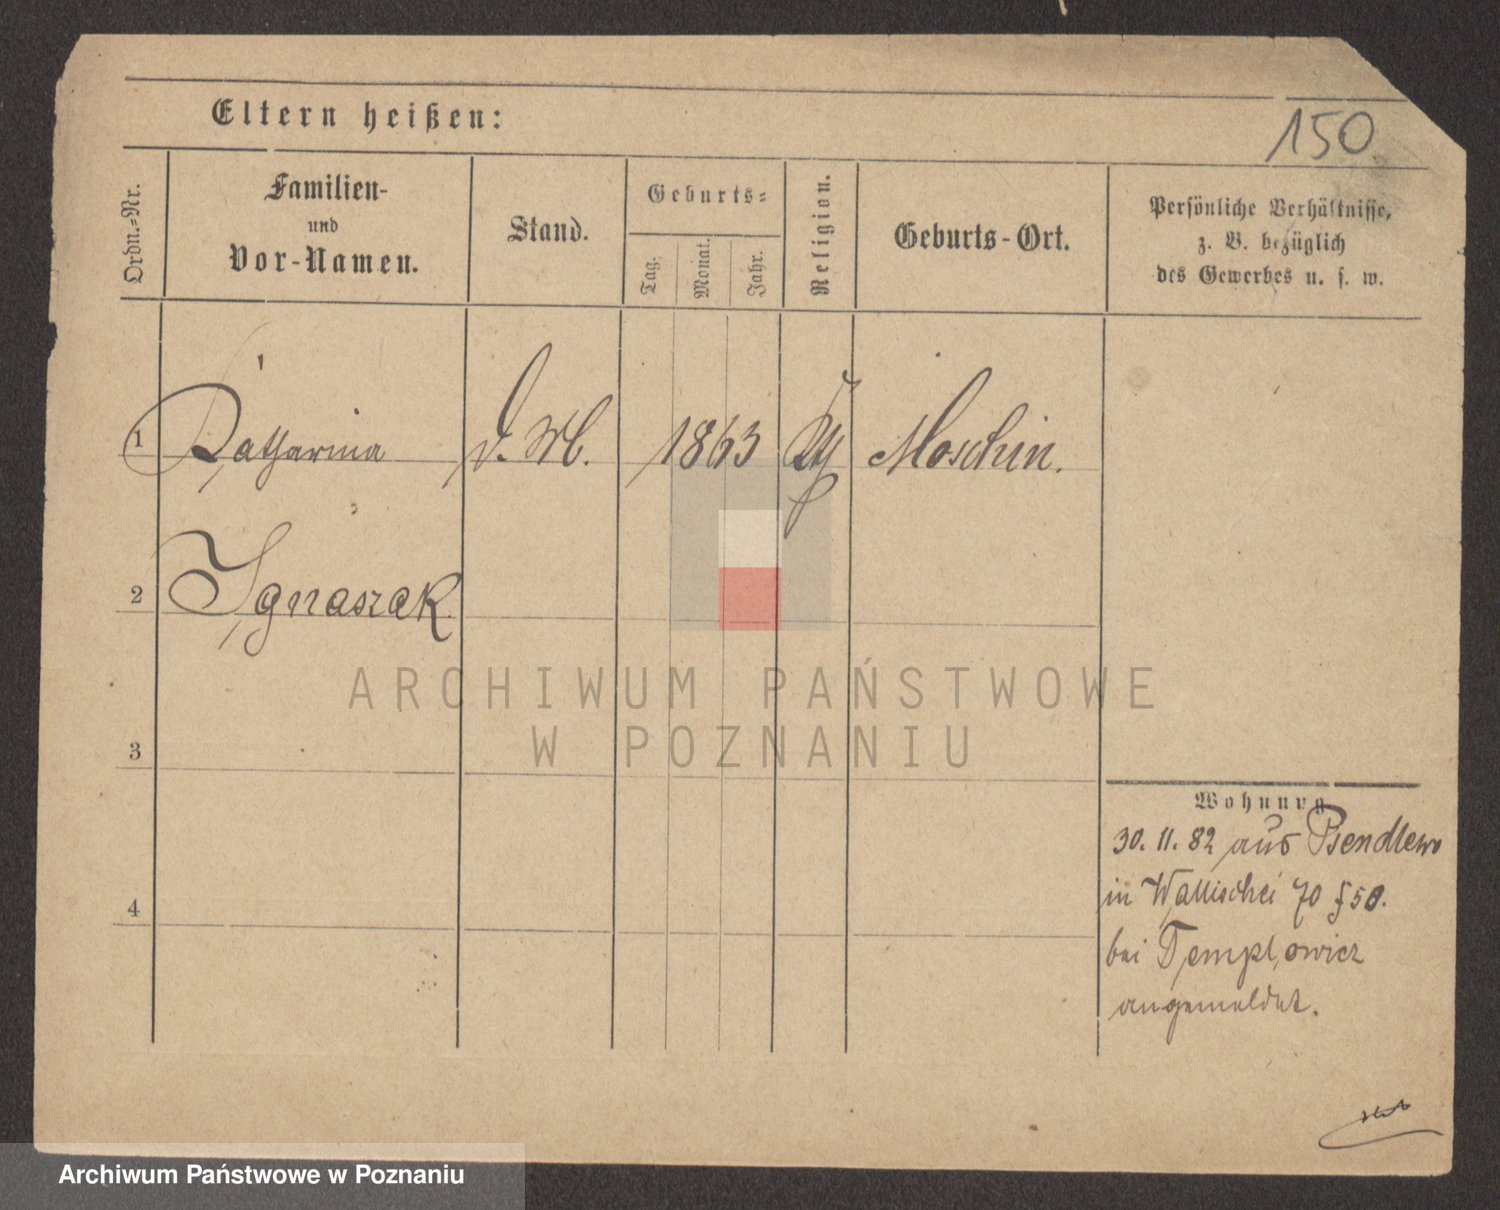 Eltern heißen:
150
Ordn.-Nr.
Familien-
und
Vor-Namen.
Stand.
Geburts-
Tag.
Monat.
Jahr.
Religion.
Geburts-Ort.
Persönliche Verhältnisse,
z. B. bezüglich
des Gewerbes u. s. w.
1 Katharina 1863 Moschin.
2 Ignaszak
3
4
ARCHIWUM PAŃSTWOWE
W POZNANIU
Wohnung
30. 11. 82 aus
in Wallischei 70
bei Templowicz
angemeldet.
Archiwum Państwowe w Poznaniu